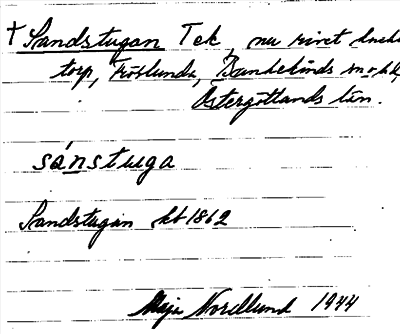 † Sandstugan Tek, nu rivet
torp, Fröslunda, Bankekinds
Östergötlands län.
sánstuga
Sandstugan hb 1862
Maja Nordlund 1944